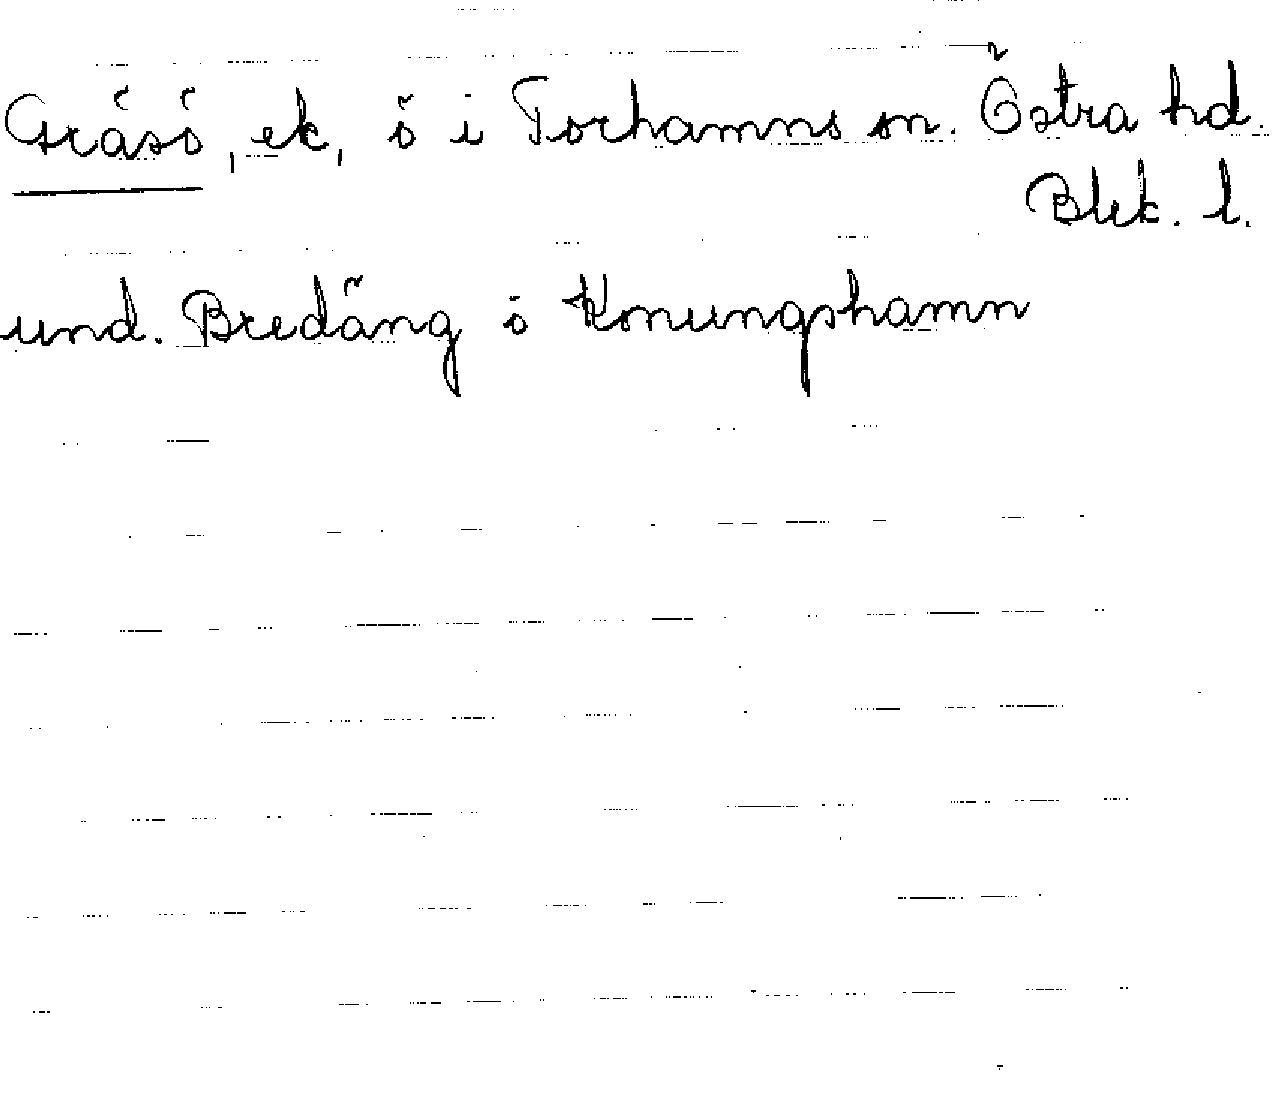 Gräsö, ek, ö i Torhamns sn. Östra hd.
Blek. l.
und. Bredäng o Konungshamn